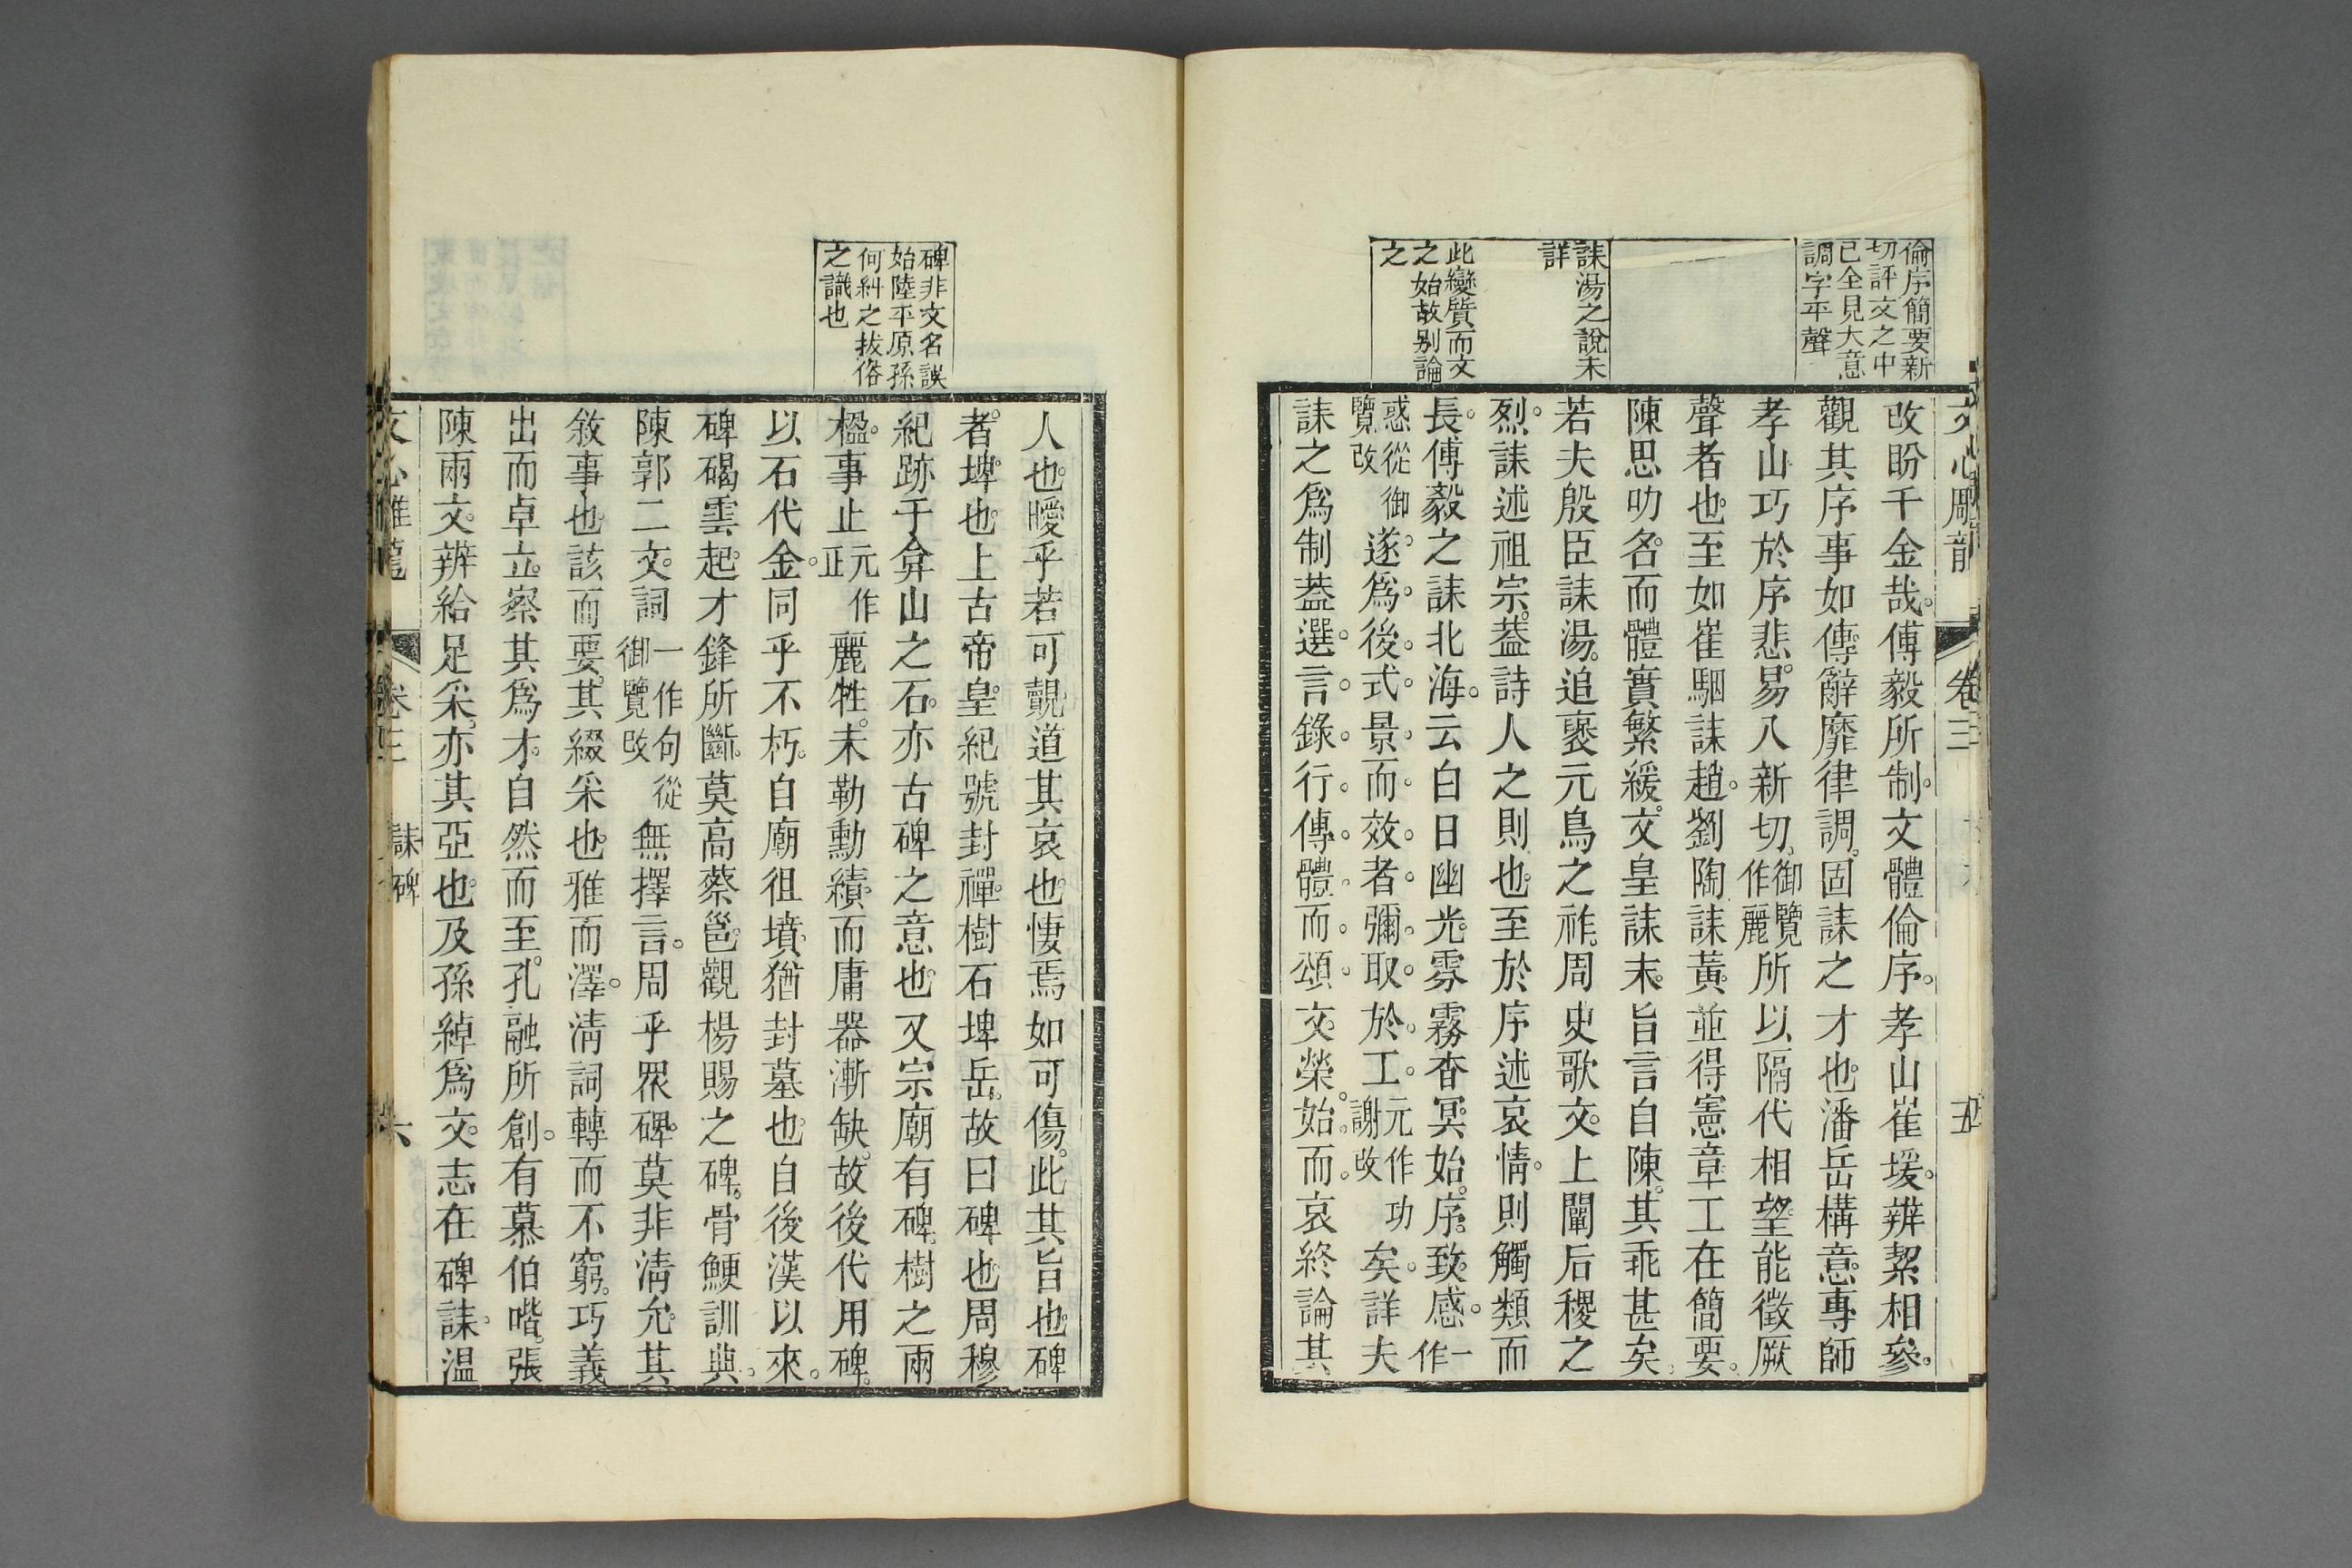 文心雕龍 卷三 五
倫序簡要新
切評文之中
己全見大意
調字平聲
誄湯之說未
詳
此變質而文
之始故別論
之
改盼千金哉傅毅所制文體倫序孝山崔瑗辨絜相參
觀其序事如傳辭靡律調固誄之才也潘岳構意專師
孝山巧於序悲易入新切御覽作麗所以隔代相望能徵厥
聲者也至如崔駰誄趙劉陶誄黃並得憲章工在簡要
陳思叨名而體實繁緩文皇誄末旨言自陳其乖甚矣
若夫殷臣誄湯追褒元鳥之祚周史歌文上闡后稷之
烈誄述祖宗葢詩人之則也至於序述哀情則觸類而
長傅毅之誄北海云白日幽光雰霧杳冥始序致感一作
惑從御覽改遂爲後式景而效者彌取於工元作功謝改矣詳夫
誄之爲制葢選言錄行傳體而頌文榮始而哀終論其
碑非文名誤
始陸平原孫
何糾之拔俗
之識也
人也曖乎若可覿道其哀也悽焉如可傷此其旨也碑
者埤也上古帝皇紀號封禪樹石埤岳故曰碑也周穆
紀跡于弇山之石亦古碑之意也又宗廟有碑樹之兩
楹事止元作正麗牲未勒勳績而庸器漸缺故後代用碑
以石代金同乎不朽自廟徂墳猶封墓也自後漢以來
碑碣雲起才鋒所斷莫高蔡邕觀楊賜之碑骨鯁訓典
陳郭二文詞一作句從御覽改無擇言周乎眾碑莫非淸允其
敘事也該而要其綴采也雅而澤淸詞轉而不窮巧義
出而卓立察其爲才自然而至孔融所創有慕伯喈張
陳兩文辨給足采亦其亞也及孫綽爲文志在碑誄溫
文心雕龍 卷三 誄碑 六